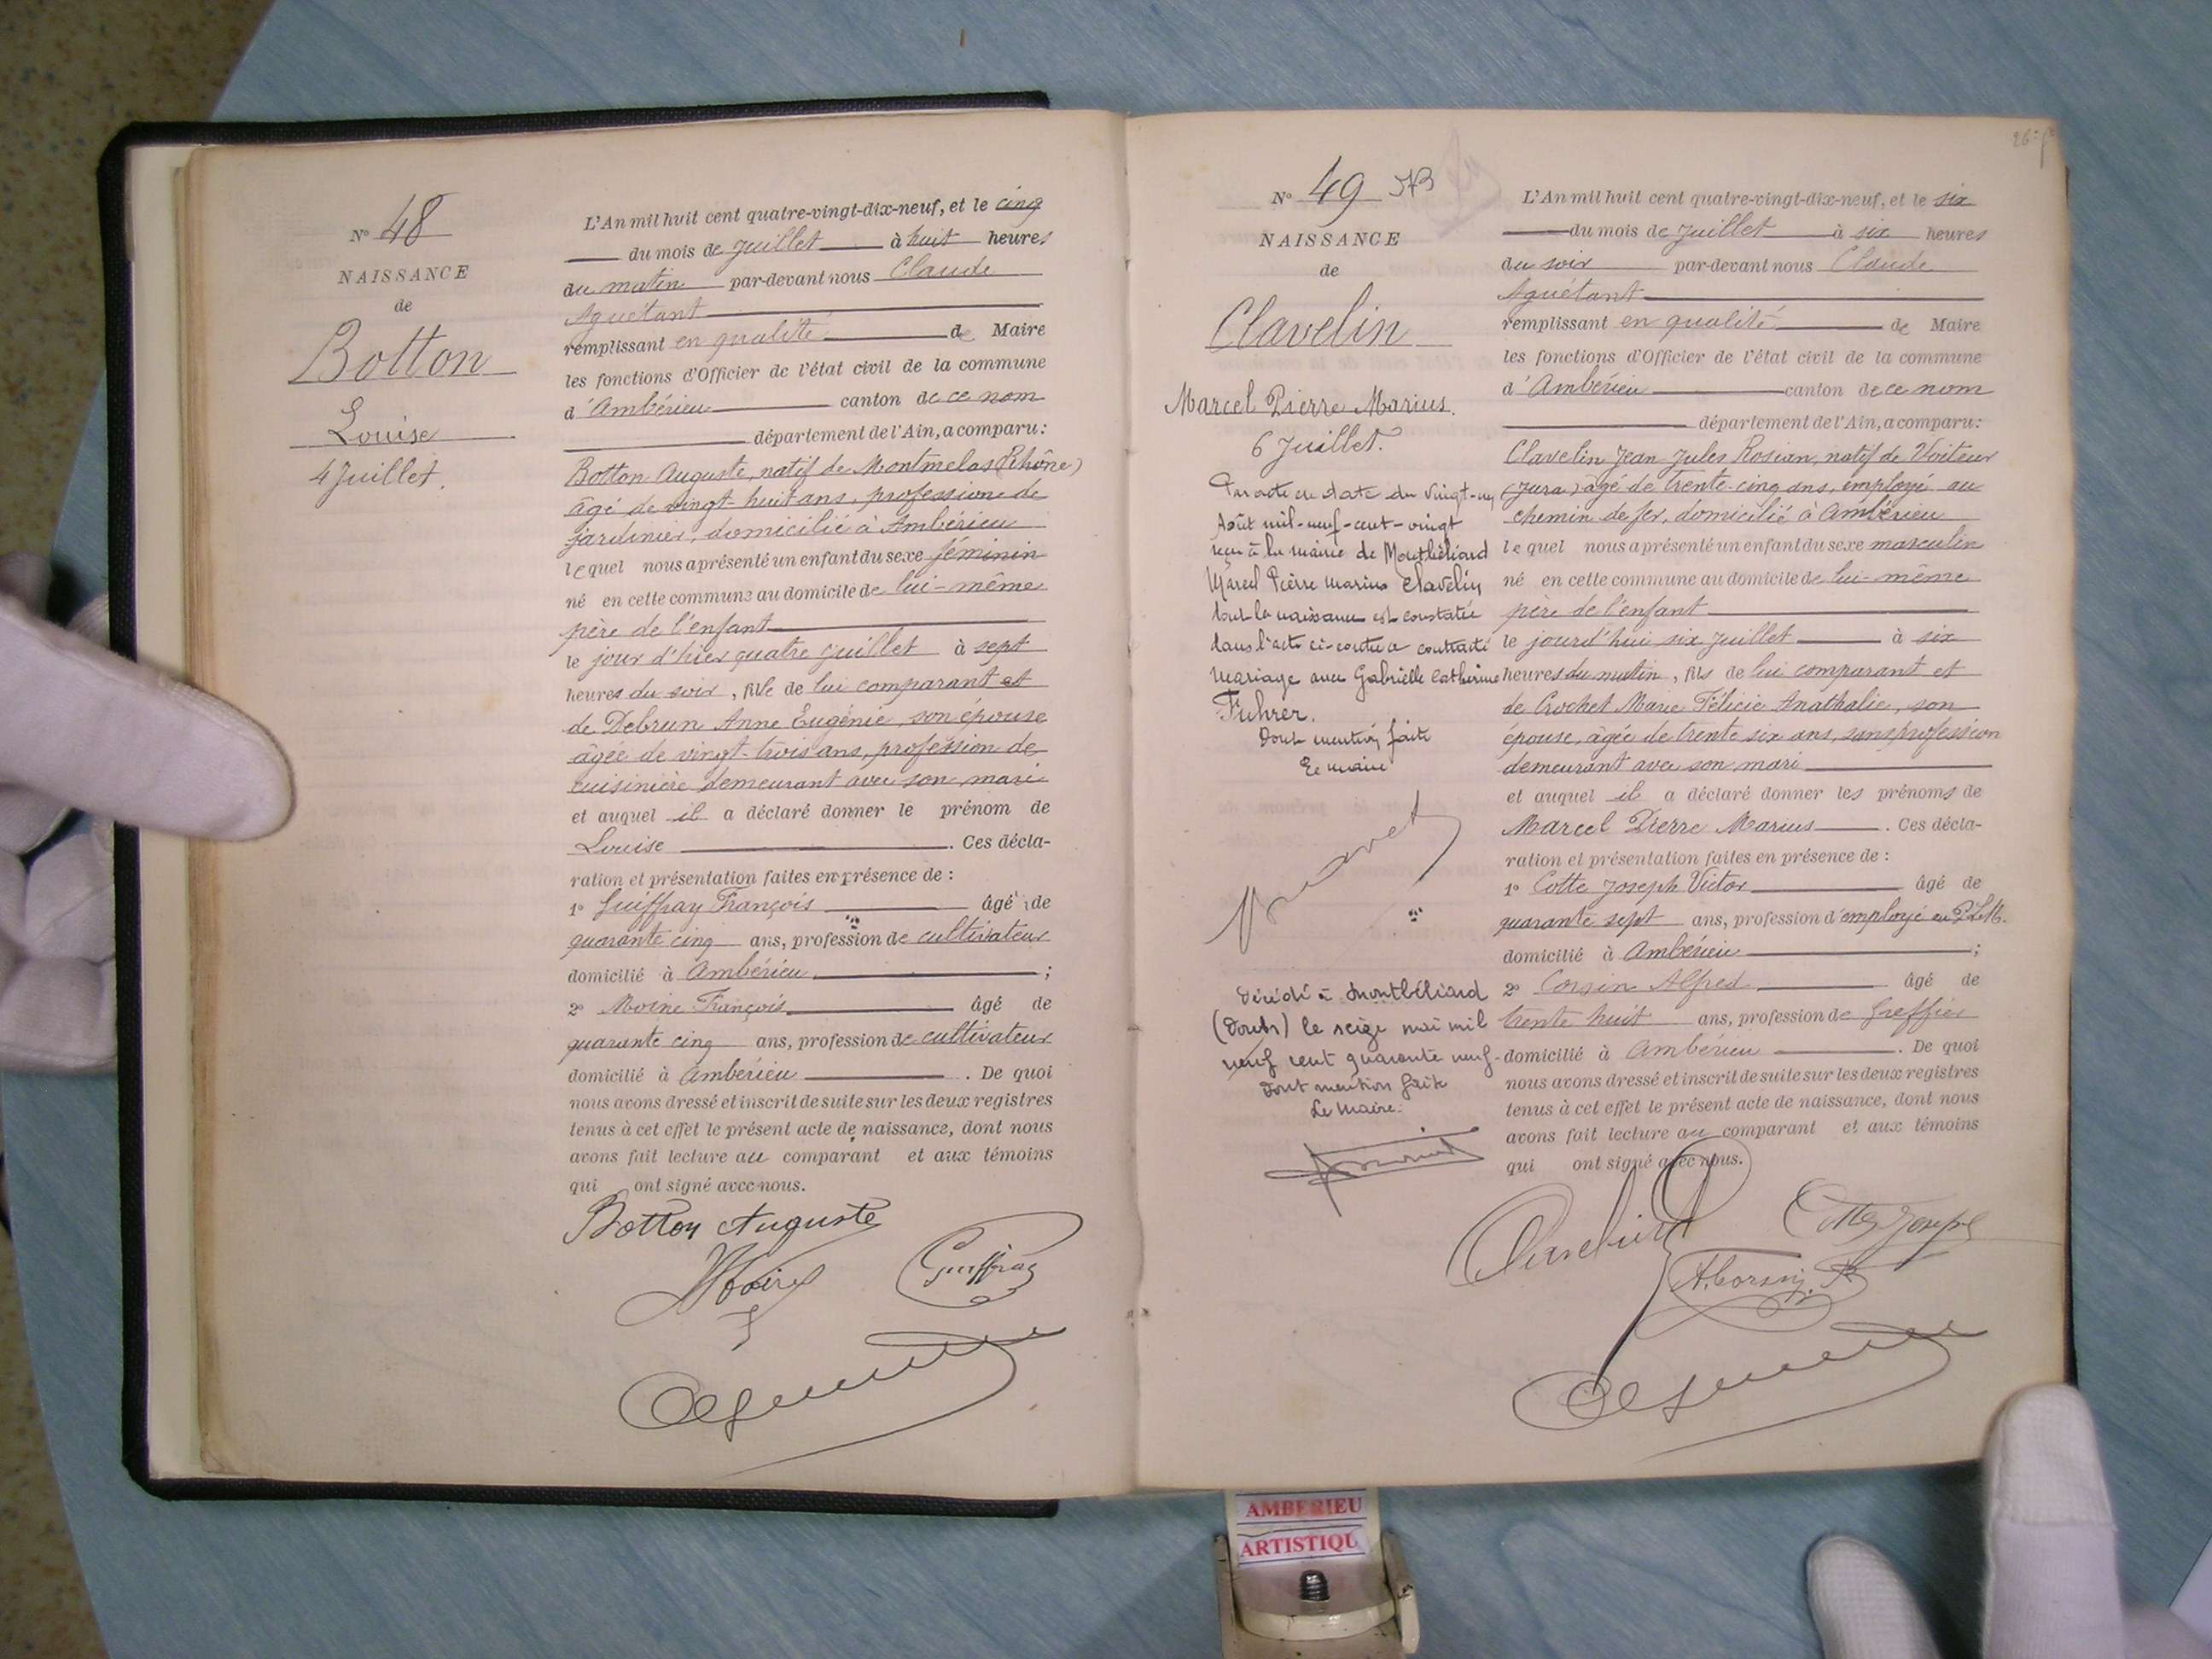 N° 48
NAISSANCE
de
Botton
Louise
4 Juillet.
L'An mil huit cent quatre-vingt-dix-neuf, et le cinq
du mois de Juillet à huit heures
du matin par-devant nous Claude
Aguétant
remplissant en qualité de Maire
les fonctions d'Officier de l'état civil de la commune
d'Ambérieu canton de ce nom
département de l'Ain, a comparu:
Botton Auguste, natif de Montmelas (Rhône)
âgé de vingt-huit ans, profession de
jardinier, domicilié à Ambérieu
lequel nous a présenté un enfant du sexe féminin
né en cette commune au domicile de lui-même
père de l'enfant
le jour d'hier quatre juillet à sept
heures du soir, fille de lui comparant et
de Debrun Anne Eugénie, son épouse
âgée de vingt-trois ans, profession de
cuisinière demeurant avec son mari
et auquel il a déclaré donner le prénom de
Louise. Ces décla-
ration et présentation faites en présence de :
1° Guiffray François âgé de
quarante cinq ans, profession de cultivateur
domicilié à Ambérieu ;
2° Moine François âgé de
quarante cinq ans, profession de cultivateur
domicilié à Ambérieu. De quoi
nous avons dressé et inscrit de suite sur les deux registres
tenus à cet effet le présent acte de naissance, dont nous
avons fait lecture au comparant et aux témoins
qui ont signé avec nous.
Botton Auguste
Moine Guiffray
N° 49
NAISSANCE
de
Clavelin
Marcel Pierre Marius.
6 Juillet.
Par acte en date du vingt-un
Août mil-neuf-cent-vingt
reçu à la mairie de Montbéliard
Marcel Pierre Marius Clavelin
dont la naissance est constatée
dans l'acte ci-contre a contracté
mariage avec Gabrielle Catherine
Fuhrer.
Dont mention faite
Le maire
Décédé à Montbéliard
(Doubs) le seize mai mil
neuf cent quarante neuf-
Dont mention faite
Le Maire.
L'An mil huit cent quatre-vingt-dix-neuf, et le six
du mois de Juillet à six heures
du soir par-devant nous Claude
Aguétant
remplissant en qualité de Maire
les fonctions d'Officier de l'état civil de la commune
d'Ambérieu canton de ce nom
département de l'Ain, a comparu:
Clavelin Jean Jules Rosian, natif de Voiteur
(Jura) âgé de trente-cinq ans, employé au
chemin de fer, domicilié à Ambérieu
lequel nous a présenté un enfant du sexe masculin
né en cette commune au domicile de lui-même
père de l'enfant
le jourd'hui six Juillet à six
heures du matin, fils de lui comparant et
de Crochet Marie Félicie Anathalie, son
épouse, âgée de trente six ans, sans profession
demeurant avec son mari
et auquel il a déclaré donner les prénoms de
Marcel Pierre Marius. Ces décla-
ration et présentation faites en présence de :
1° Cotte Joseph Victor âgé de
quarante sept ans, profession d'employé au P.L.M.
domicilié à Ambérieu ;
2° Corsin Alfred âgé de
trente huit ans, profession de Greffier
domicilié à Ambérieu. De quoi
nous avons dressé et inscrit de suite sur les deux registres
tenus à cet effet le présent acte de naissance, dont nous
avons fait lecture au comparant et aux témoins
qui ont signé avec nous.
Clavelin Cotte Joseph
A. Corsin
AMBERIEU
ARTISTIQU